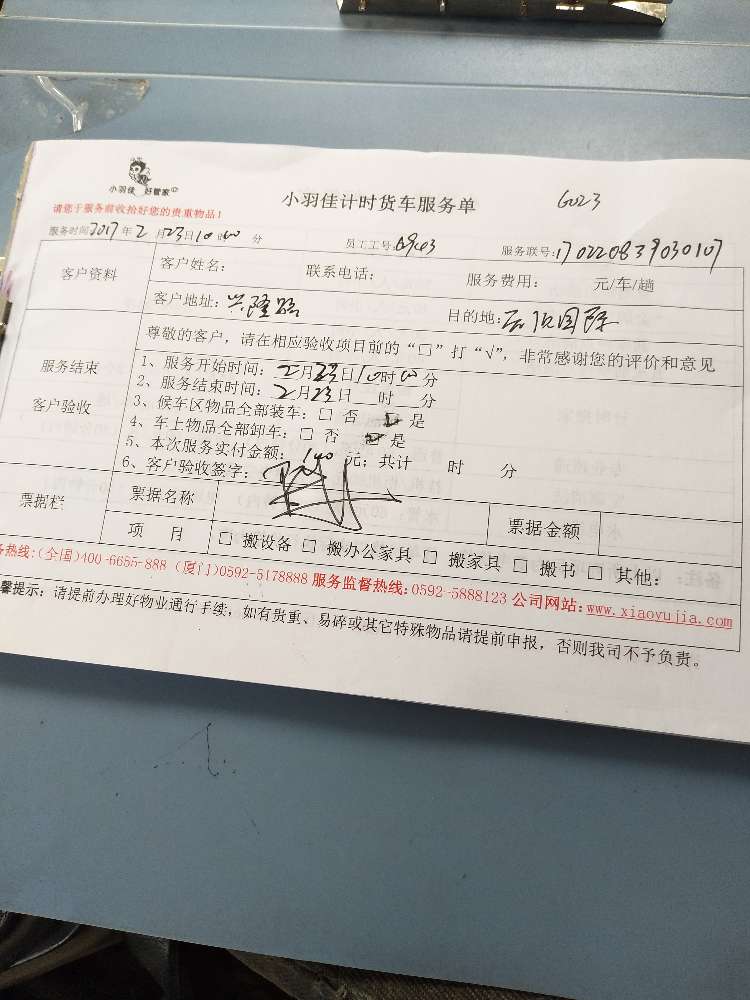 小羽佳 好管家
小羽佳计时货车服务单 G023
请您于服务前收拾好您的贵重物品！
服务时间2017年2月23日10时00分 员工工号: 服务联号:170220839030107
客户资料 客户姓名: 联系电话: 服务费用: 元/车/趟
客户地址:兴隆路 目的地:国际
服务结束
客户验收
尊敬的客户，请在相应验收项目前的“□”打“√”，非常感谢您的评价和意见
1、服务开始时间: 2月23日10时00分
2、服务结束时间: 2月23日 时 分
3、候车区物品全部装车: □ 否 ☑ 是
4、车上物品全部卸车: □ 否 ☑ 是
5、本次服务实付金额: 140 元; 共计 时 分
6、客户验收签字:
票据栏 票据名称 票据金额
项 目 □ 搬设备 □ 搬办公家具 □ 搬家具 □ 搬书 □ 其他:
务热线:(全国)400-6655-888 (厦门)0592-5178888 服务监督热线:0592-5888123 公司网站:www.xiaoyujia.com
馨提示: 请提前办理好物业通行手续，如有贵重、易碎或其它特殊物品请提前申报，否则我司不予负责。